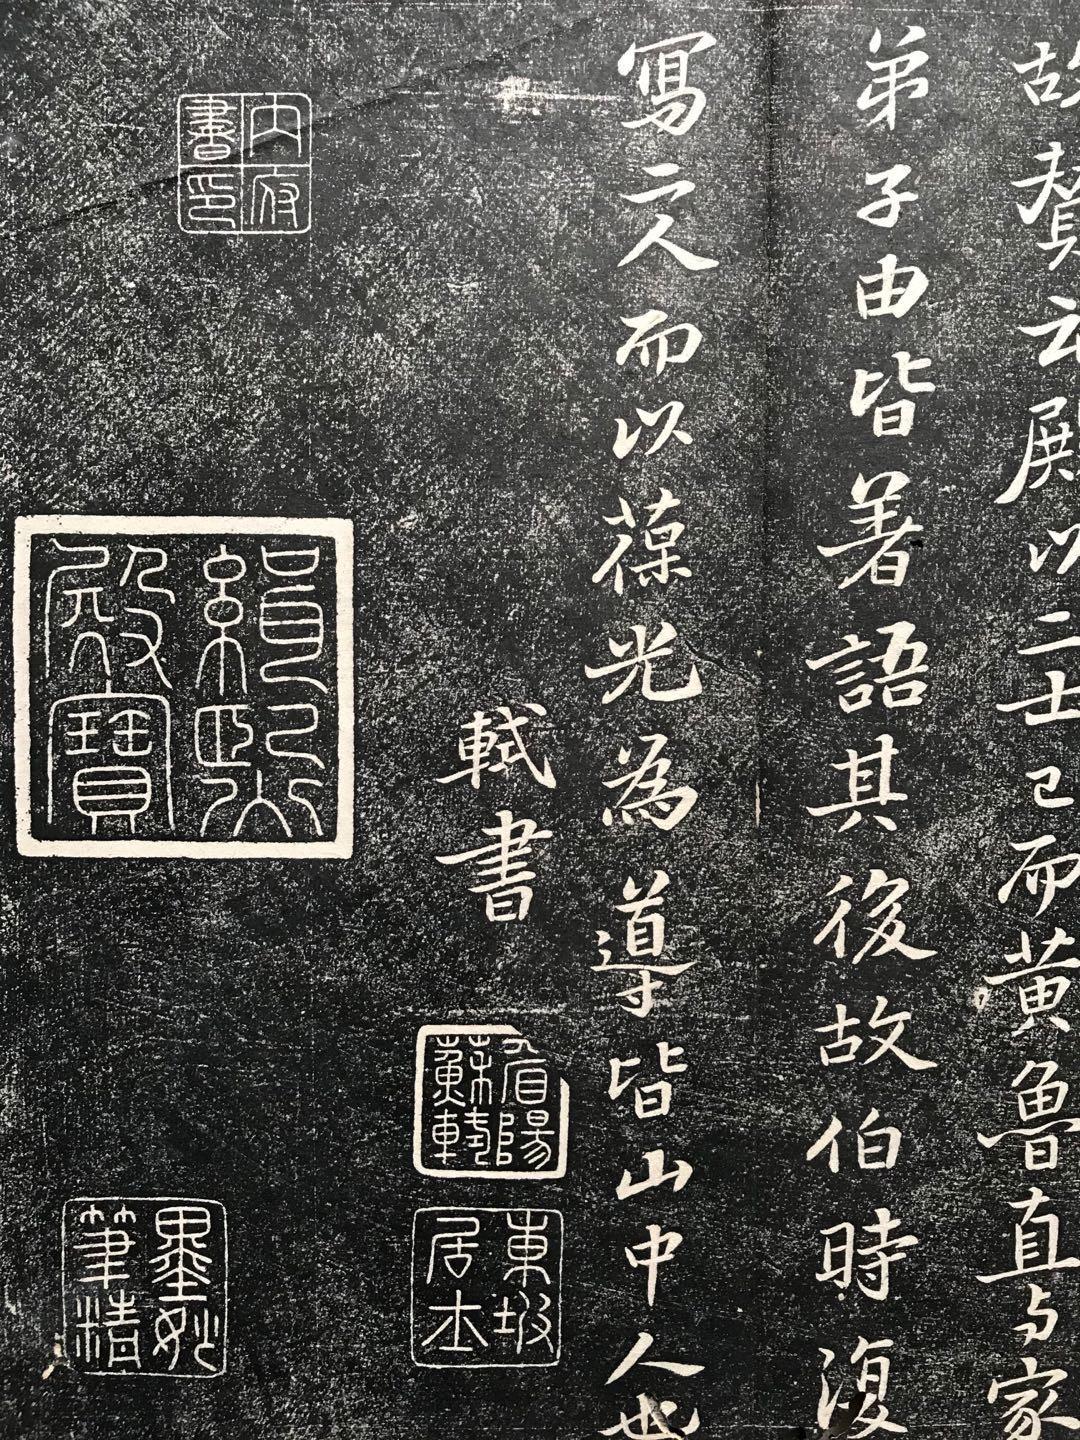 故贊云殿以二士已而黃魯直与家
弟子由皆著語其後故伯時復
寫二人而以葆光為導皆山中人也
軾書
眉陽蘇軾
東坡居士
內府書印
緝熙殿寶
墨妙筆精